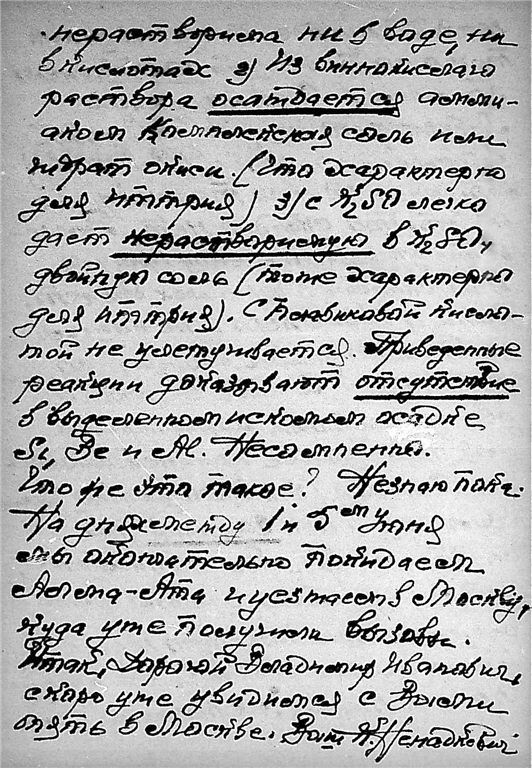 нерастворима ни в воде, ни
в кислотах 2) Из виннокислаго
раствора осаждается амми-
аком комплексная соль или
гидрат окиси. (Что характерно
для иттрия) 3) с K₂SO легко
дает нерастворимую в K₂SO₄
двойную соль (тоже характерны
для иттрия). С плавиковой кисло-
той не улетучивается. Приведенные
реакции доказывают отсутствие
в выделенном искомом осадке
Si, Be и Al. Несомненны.
Что же это такое? Незнаю пока.
На днях между 1 и 5ᵐᵘ Июня
мы окончательно покидаем
Алма-Ата и уезжаем в Москву,
куда уже получили вызовы.
Итак, дорогой Владимир Иванович,
скоро уже увидимся с Вами
опять в Москве. Ваш К. Ненадкевич